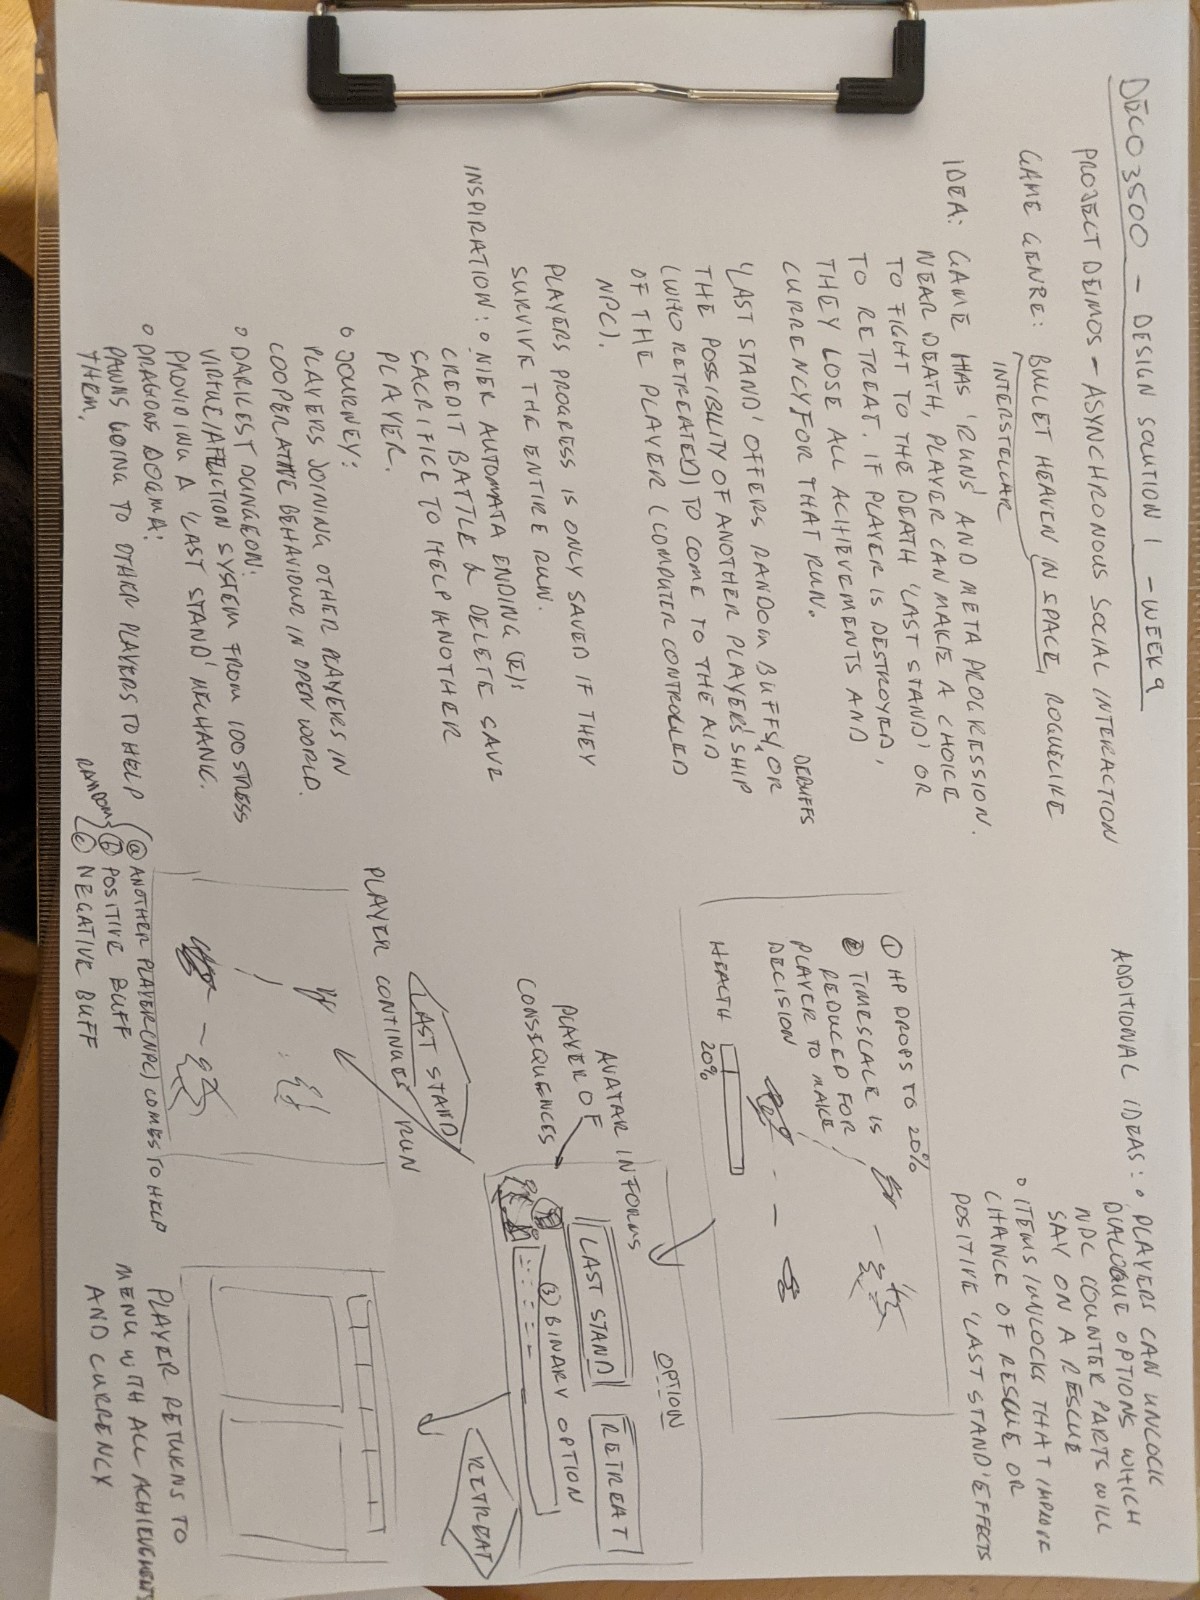 DECO3500 - DESIGN SOLUTION 1 - WEEK 9
PROJECT DEIMOS - ASYNCHRONOUS SOCIAL INTERACTION
GAME GENRE: BULLET HEAVEN IN SPACE, ROGUELIKE
INTERSTELLAR
IDEA: GAME HAS 'RUNS' AND META PROGRESSION.
NEAR DEATH, PLAYER CAN MAKE A CHOICE
TO FIGHT TO THE DEATH 'LAST STAND' OR
TO RETREAT. IF PLAYER IS DESTROYED,
THEY LOSE ALL ACHIEVEMENTS AND
CURRENCY FOR THAT RUN.
DEBUFFS
'LAST STAND' OFFERS RANDOM BUFFS/, OR
THE POSSIBILITY OF ANOTHER PLAYERS' SHIP
(WHO RETREATED) TO COME TO THE AID
OF THE PLAYER (COMPUTER CONTROLLED
NPC).
PLAYERS PROGRESS IS ONLY SAVED IF THEY
SURVIVE THE ENTIRE RUN.
INSPIRATION: o NIER AUTOMATA ENDING (E):
CREDIT BATTLE & DELETE SAVE
SACRIFICE TO HELP ANOTHER
PLAYER.
o JOURNEY:
PLAYERS JOINING OTHER PLAYERS IN
COOPERATIVE BEHAVIOUR IN OPEN WORLD.
o DARKEST DUNGEON:
VIRTUE/AFFLICTION SYSTEM FROM 100 STRESS
PROVIDING A 'LAST STAND' MECHANIC.
o DRAGONS DOGMA:
PAWNS GOING TO OTHER PLAYERS TO HELP
THEM.
ADDITIONAL IDEAS: o PLAYERS CAN UNLOCK
DIALOGUE OPTIONS WHICH
NPC COUNTER PARTS WILL
SAY ON A RESCUE
o ITEMS/UNLOCKS THAT IMPROVE
CHANCE OF RESCUE OR
POSITIVE 'LAST STAND' EFFECTS
① HP DROPS TO 20%
② TIMESCALE IS
REDUCED FOR
PLAYER TO MAKE
DECISION
HEALTH
20%
OPTION
LAST STAND
RETREAT
③ BINARY OPTION
AVATAR INFORMS
PLAYER OF
CONSEQUENCES
RETREAT
LAST STAND
PLAYER CONTINUES RUN
RANDOM
ⓐ ANOTHER PLAYER (NPC) COMES TO HELP
ⓑ POSITIVE BUFF
ⓒ NEGATIVE BUFF
PLAYER RETURNS TO
MENU WITH ALL ACHIEVEMENTS
AND CURRENCY